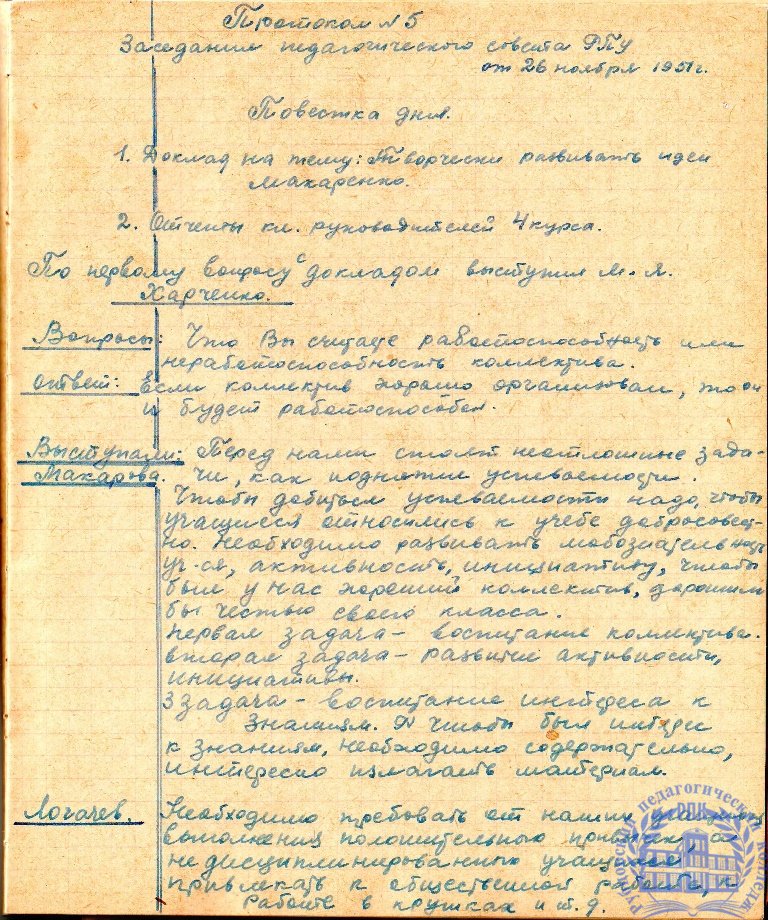 Протокол № 5
Заседания педагогического совета РПУ
от 26 ноября 1951 г.
Повестка дня.
1. Доклад на тему: Творчески развивать идеи
Макаренко.
2. Отчеты кл. руководителей 4 курса.
По первому вопросу с докладом выступил М. Я.
Харченко.
Вопросы: Что Вы считаете работоспособность или
неработоспособность коллектива.
Ответ: Если коллектив хорошо организован, то он
и будет работоспособен.
Выступали: Перед нами стоят неотложные зада-
Макарова. чи, как поднятие успеваемости.
Чтобы добиться успеваемости надо, чтобы
учащиеся относились к учебе добросовест-
но. Необходимо развивать любознательность
уч-ся, активность, инициативу, чтобы
был у нас хороший коллектив, дорожили
бы честью своего класса.
Первая задача - воспитание коллектива.
вторая задача - развитие активности,
инициативы.
3 задача - воспитание интереса к
знаниям. Чтобы был интерес
к знаниям, необходимо содержательно,
интересно излагать материал.
Логачев. Необходимо требовать от наших учащихся
выполнения положительных привычек, а
недисциплинированных учащихся
привлекать к общественной работе, к
работе в кружках и т.д.
Руповский педагогический колледж
РПК